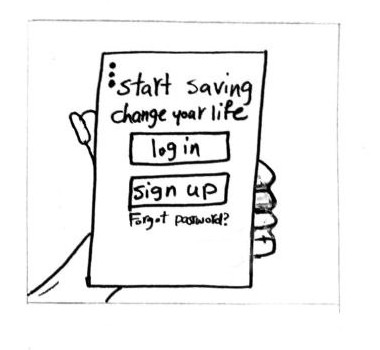 start saving
change your life
log in
sign up
Forgot password?